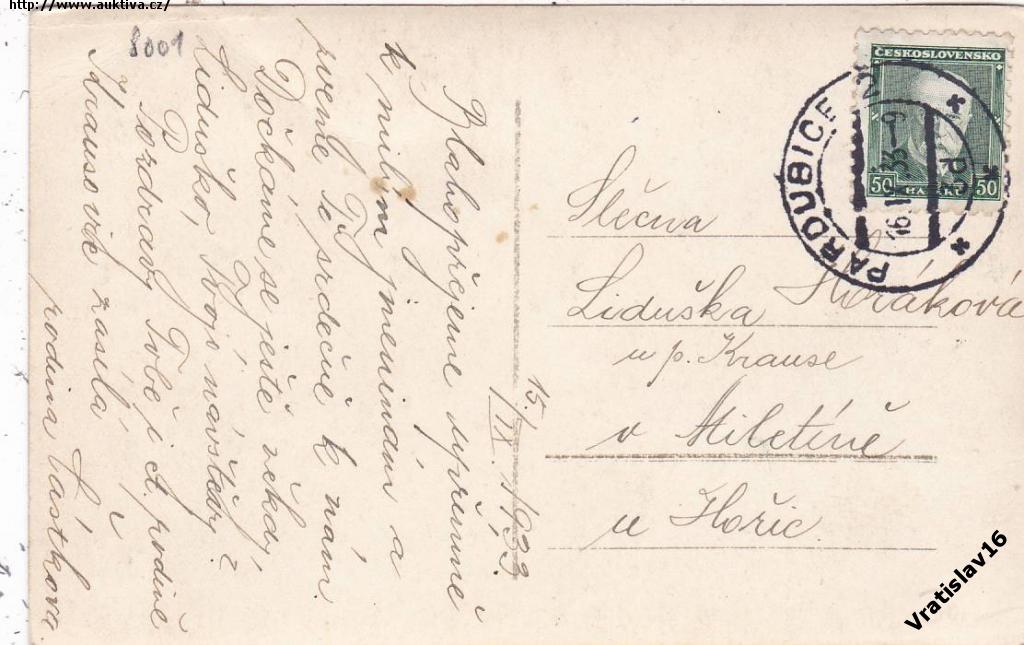 http://www.auktiva.cz/
8001
15./IX. 1933.
Blahopřejeme upřímně
k milým jmeninám a
zveme Tě srdečně k nám.
Dočkáme se ještě někdy,
Liduško, Tvojí návštěvy?
Pozdravy Tobě i ct. rodině
Krausovic zasílá
rodina Částkova.
ČESKOSLOVENSKO
50 HALÉŘŮ 50
PARDUBICE 2
Slečna
Liduška Horáková
u p. Krause
v Miletíně
u Hořic.
Vratislav16